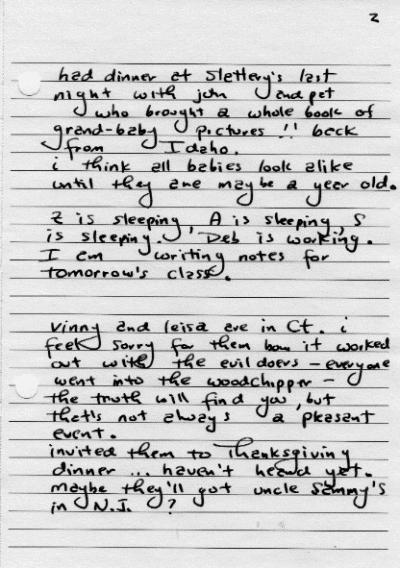 2
had dinner at Slattery's last
night with john and pat
who brought a whole book of
grand-baby pictures !! back
from Idaho.
i think all babies look alike
until they are maybe a year old.
Z is sleeping, A is sleeping, S
is sleeping. Deb is working.
I am writing notes for
tomorrow's class.
vinny and leisa are in Ct. i
feel sorry for them how it worked
out with the evil doers - everyone
went into the woodchipper -
the truth will find you, but
that's not always a pleasant
event.
invited them to Thanksgiving
dinner ... haven't heard yet.
maybe they'll got uncle Sammy's
in N.J. ?